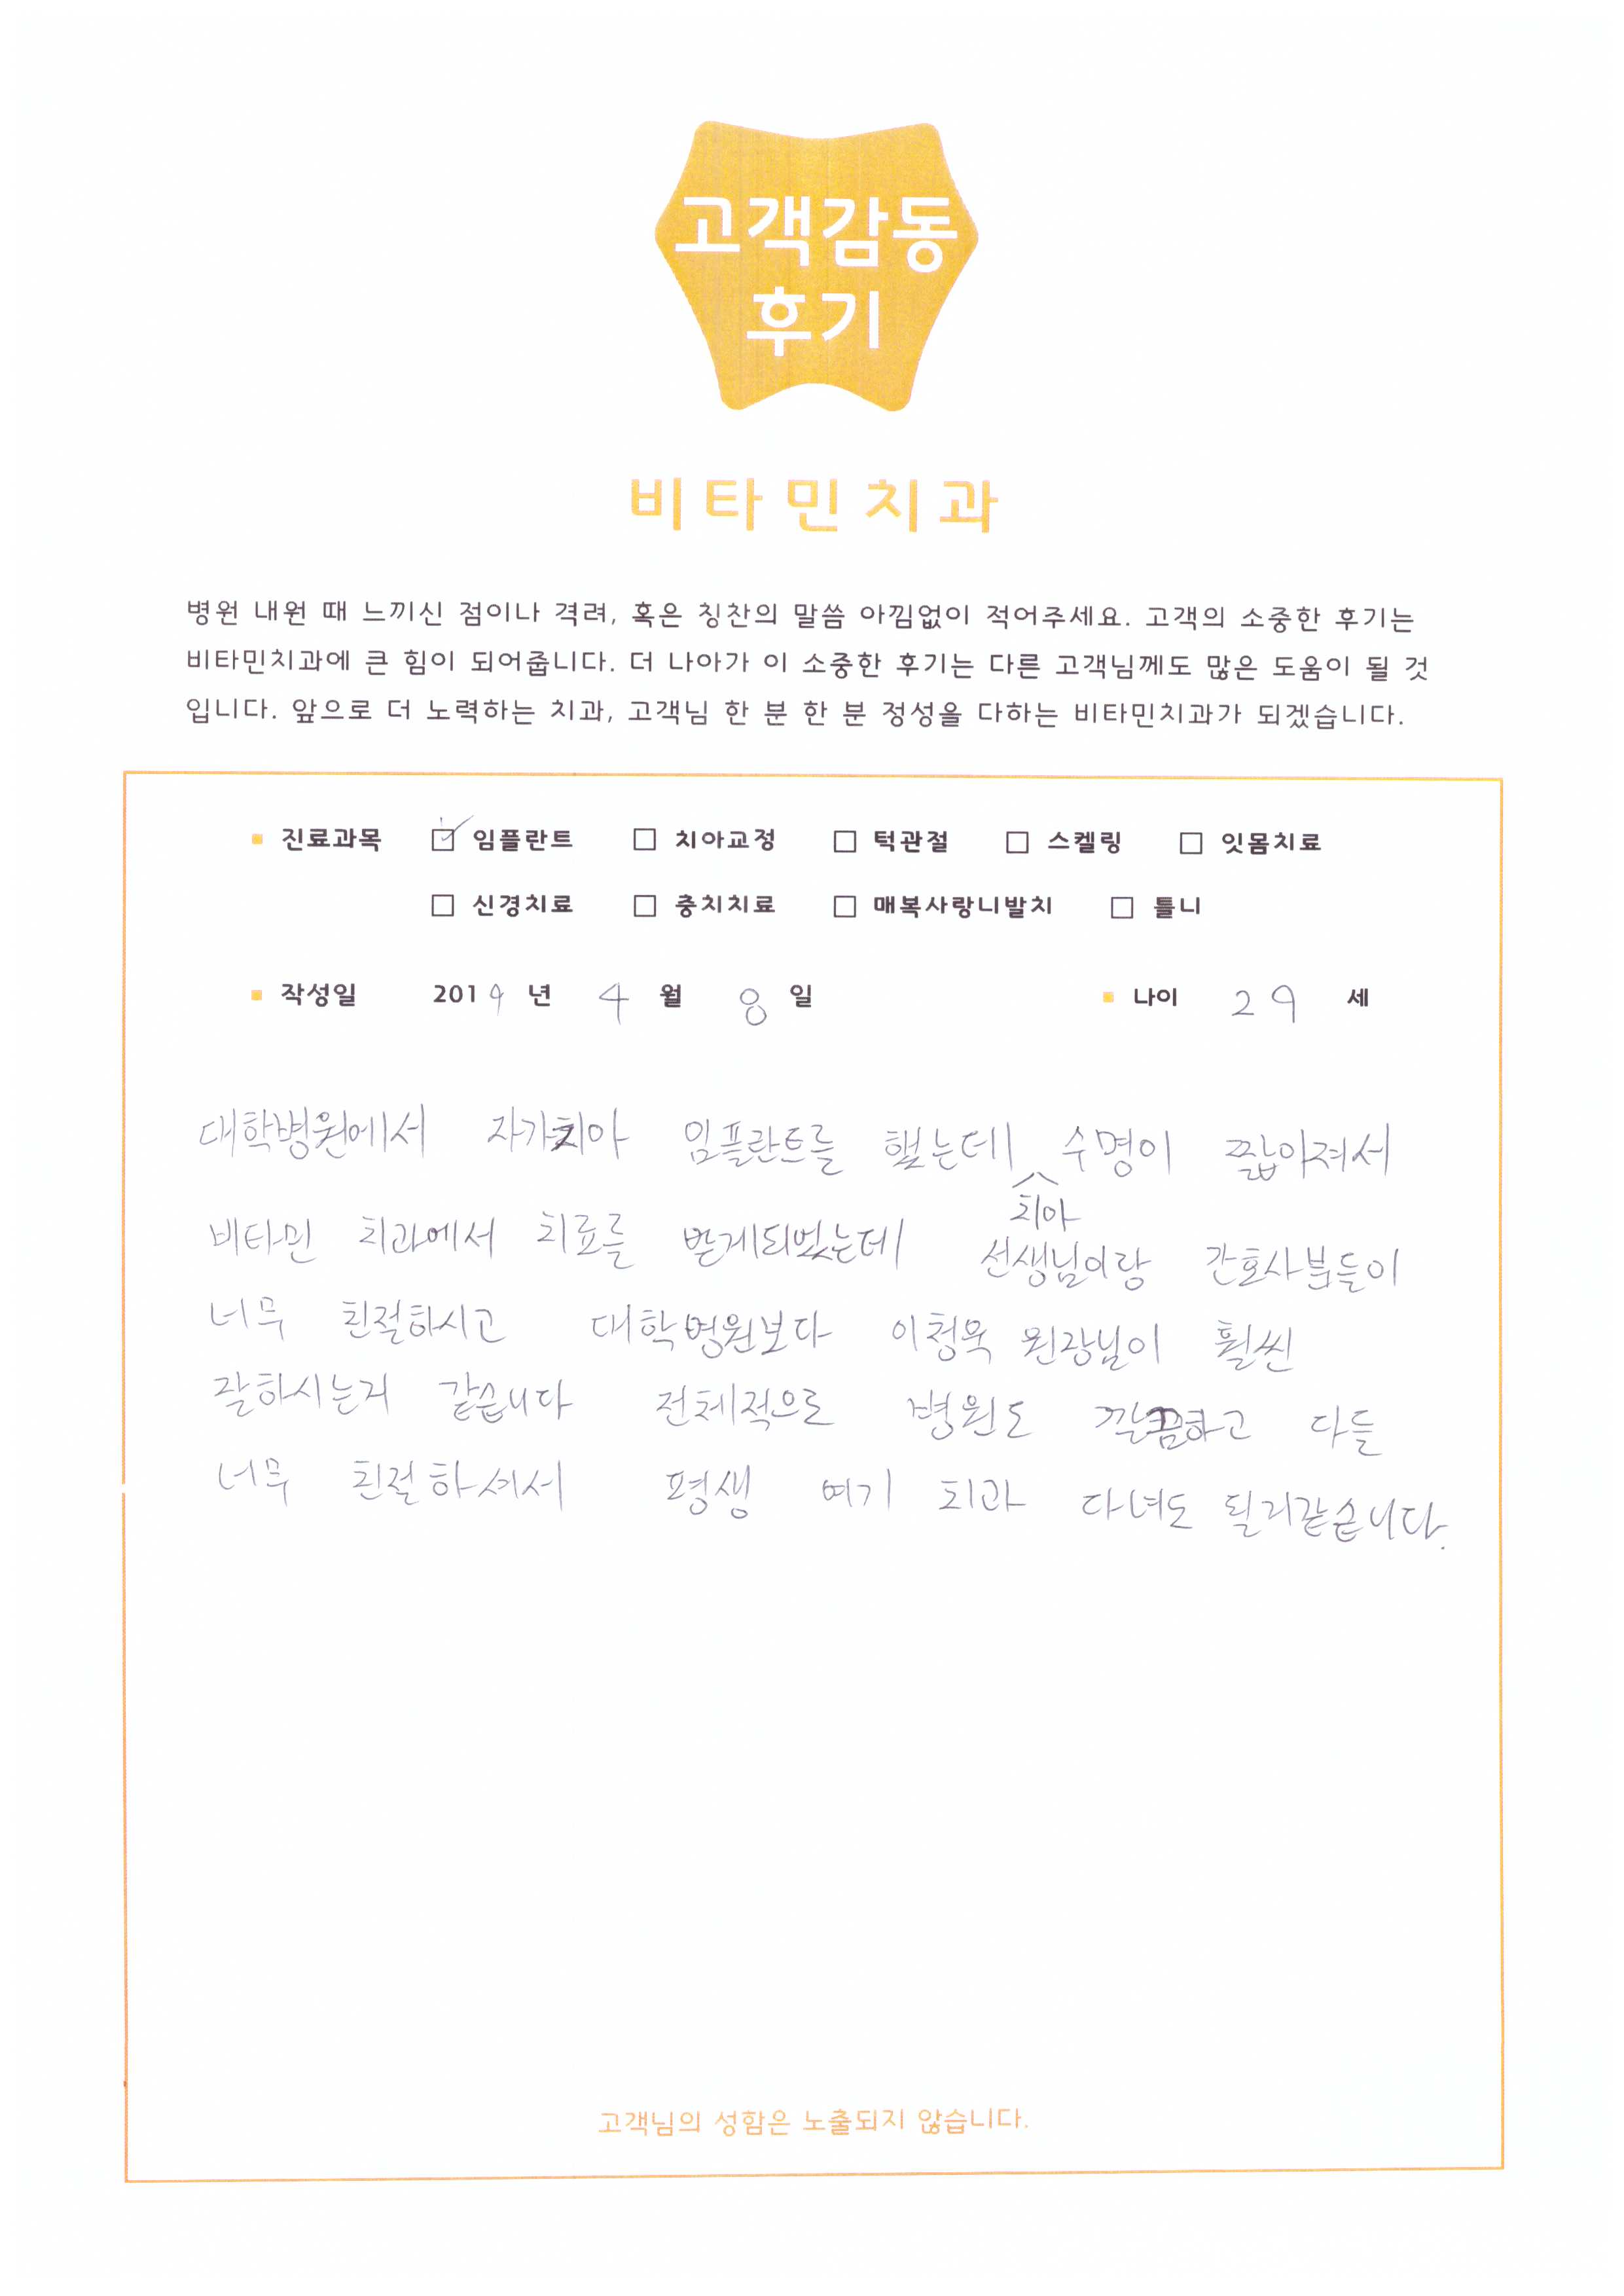 고객감동
후기
비타민치과
병원 내원 때 느끼신 점이나 격려, 혹은 칭찬의 말씀 아낌없이 적어주세요. 고객의 소중한 후기는
비타민치과에 큰 힘이 되어줍니다. 더 나아가 이 소중한 후기는 다른 고객님께도 많은 도움이 될 것
입니다. 앞으로 더 노력하는 치과, 고객님 한 분 한 분 정성을 다하는 비타민치과가 되겠습니다.
진료과목 ☑ 임플란트 □ 치아교정 □ 턱관절 □ 스켈링 □ 잇몸치료
□ 신경치료 □ 충치치료 □ 매복사랑니발치 □ 틀니
작성일 2019 년 4 월 8 일 나이 29 세
대학병원에서 자가치아 임플란트를 했는데 치아 수명이 짧아져서
비타민 치과에서 치료를 받게되었는데 선생님이랑 간호사분들이
너무 친절하시고 대학병원보다 이청욱 원장님이 훨씬
잘하시는거 같습니다 전체적으로 병원도 깔끔하고 다들
너무 친절하셔서 평생 여기 치과 다녀도 될거같습니다.
고객님의 성함은 노출되지 않습니다.